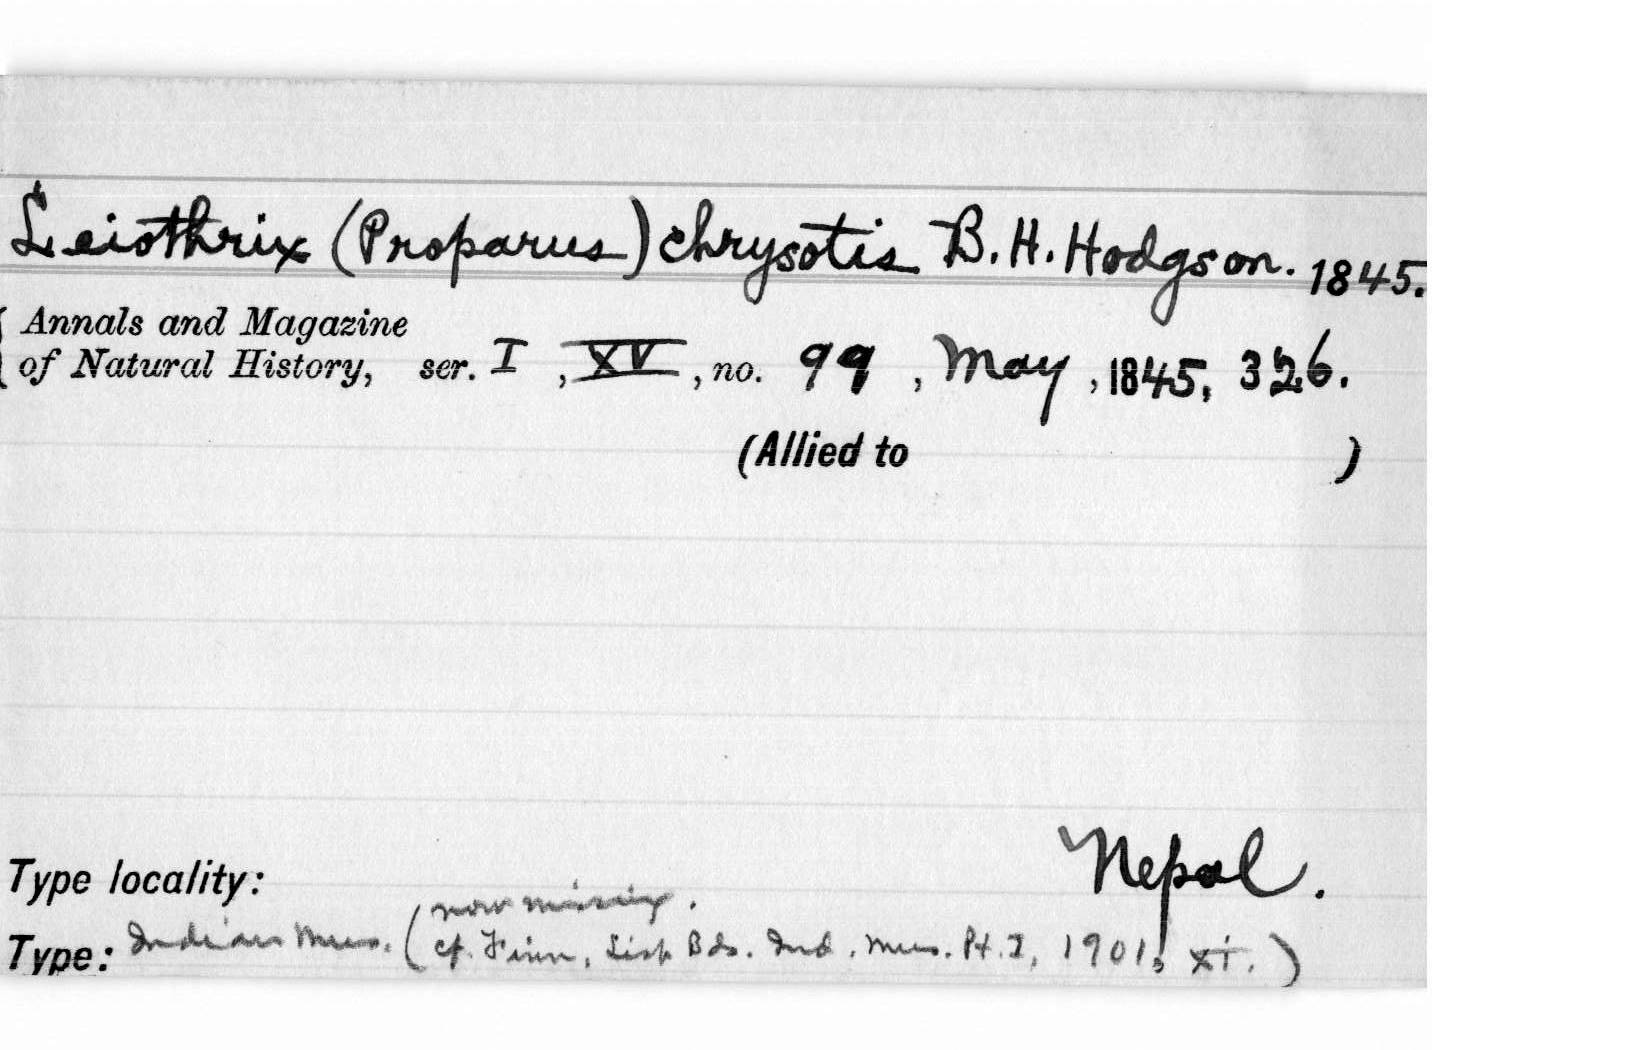 Leiothrix (Proparus) chrysotis B. H. Hodgson. 1845.
Annals and Magazine
of Natural History, ser. I, XV, no. 99, May, 1845, 326.
(Allied to )
Type locality: Nepal.
now missing.
Type: Indian Mus. (cf. Finn, List Bds. Ind. Mus. Pt. I, 1901, xi.)